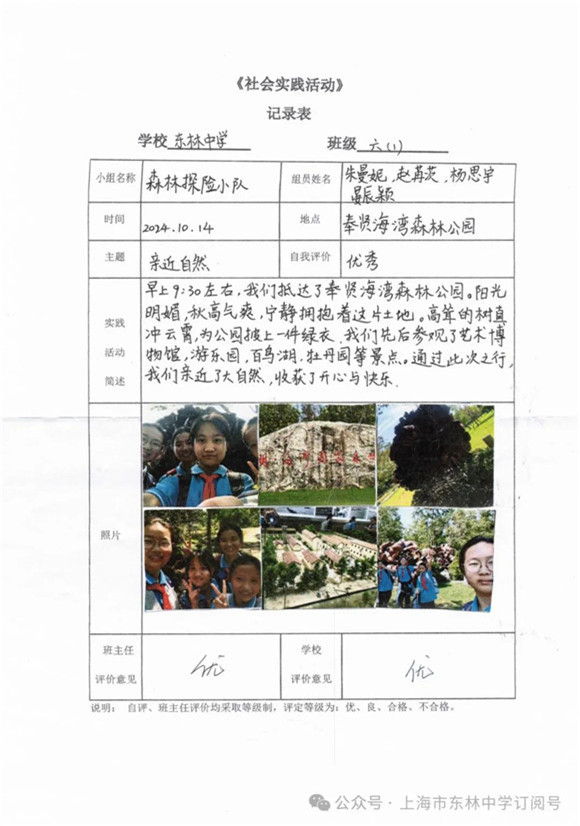 《社会实践活动》
记录表
学校 东林中学 班级 六(1)
小组名称 森林探险小队 组员姓名 朱曼妮,赵苒茨,杨思宇
晏辰颖
时间 2024.10.14 地点 奉贤海湾森林公园
主题 亲近自然 自我评价 优秀
实践
活动
简述
早上9:30左右,我们抵达了奉贤海湾森林公园。阳光
明媚,秋高气爽,宁静拥抱着这片土地。高耸的树直
冲云霄,为公园披上一件绿衣.我们先后参观了艺术博
物馆,游乐园,百鸟湖,牡丹园等景点。通过此次之行,
我们亲近了大自然,收获了开心与快乐.
照片
班主任
评价意见
优
学校
评价意见
优
说明: 自评、班主任评价均采取等级制,评定等级为:优、良、合格、不合格。
公众号·上海市东林中学订阅号